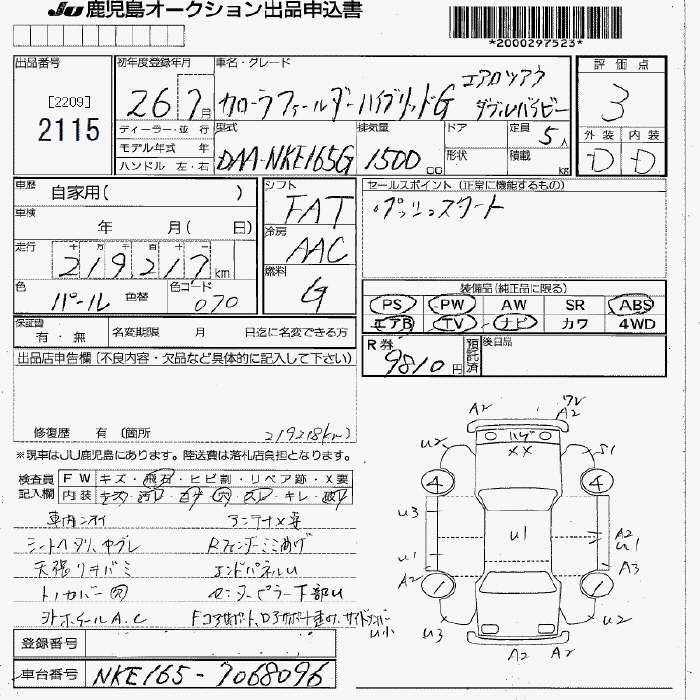 JU 鹿児島オークション出品申込書
*2000297523*
出品番号 初年度登録年月 車名・グレード 評価点
[2209]
2115
26 7月 カローラフィールダーハイブリッドG エアロツアラー ダブルバイビー 3
ディーラー・並行 型式 排気量 ドア 定員 5人 外装 内装
モデル年式 年 DAA-NKE165G 1500 cc 形状 積載 kg D D
ハンドル 左・右
車歴 自家用( ) シフト FAT セールスポイント (正常に機能するもの)
車検 年 月( 日) 冷房 AAC プッシュスタート
走行 十 万 千 百 十 219,217 km 燃料 G
色 パール 色替 色コード 070
装備品(純正品に限る)
PS PW AW SR ABS
エアB TV ナビ カワ 4WD
保証書 有・無 名変期限 月 日迄に名変できる方
R券 9810円 預託済 後日品
出品店申告欄(不良内容・欠品など具体的に記入して下さい)
修復歴 有 (箇所 219218km)
※現車はJU鹿児島にあります。陸送費は落札店負担となります。
検査員記入欄 FW キズ・飛石・ヒビ割・リペア跡・X要
内装 キズ・汚レ・コゲ・穴・スレ・キレ・破レ
車内ニオイ アンテナX要
シートヘタリ、ヤブレ Rフェンダーミミ曲ゲ
天張リキバミ エンドパネルU
トノカバー 欠 センターピラー下部U
外ホイールA.C
登録番号
車台番号 NKE165-7068096
A2 A2
U2 ハゲ XX S1
4 4
U3 U1 A2 U1
U1 A3
A2
1 1
U小 U3 U2
A2 A2